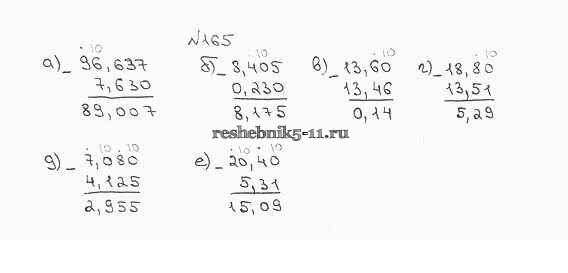 №165
. 10 . 10 . 10 . 10
а) _ 96,637 б) _ 8,405 в) _ 13,60 г) _ 18,80
7,630 0,230 13,46 13,51
89,007 8,175 0,14 5,29
reshebnik5-11.ru
. 10 . 10 . 10 . 10
д) _ 7,080 е) _ 20,40
4,125 5,31
2,955 15,09